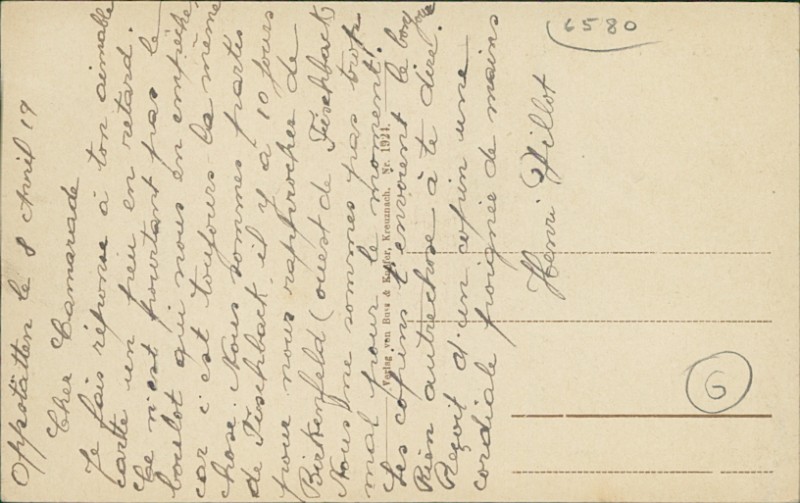 Oppstätten le 8 Avril 19
Cher Camarade
Je fais réponse à ton aimable
carte un peu en retard.
Ce n'est pourtant pas le
boulot qui nous en empêche
car c'est toujours la même
chose. Nous sommes partis
de Fischback il y a 10 jours
pour nous rapprocher de
Birkenfeld (ouest de Fischback
Nous ne sommes pas trop
mal pour le moment.
Les copins t'envoient le bonj
Rien autrechose à te dire.
Reçoit d'un copin une
cordiale poignée de mains
Henri Villot
Verlag von Buss & Kneffer, Kreuznach. Nr. 1921.
6580
G